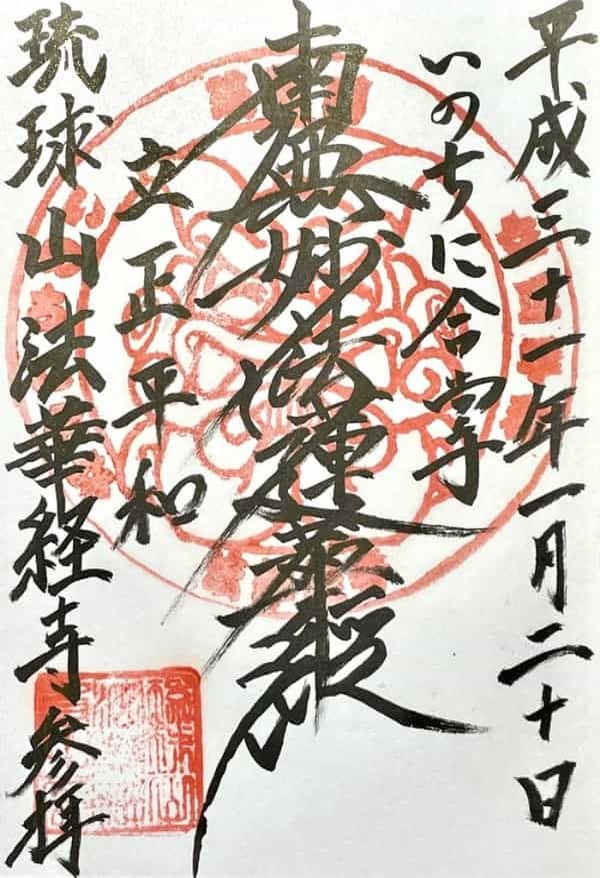 平成三十一年一月二十日
いのちに合掌
南無妙法蓮華経
立正平和
琉球山法華経寺参拝